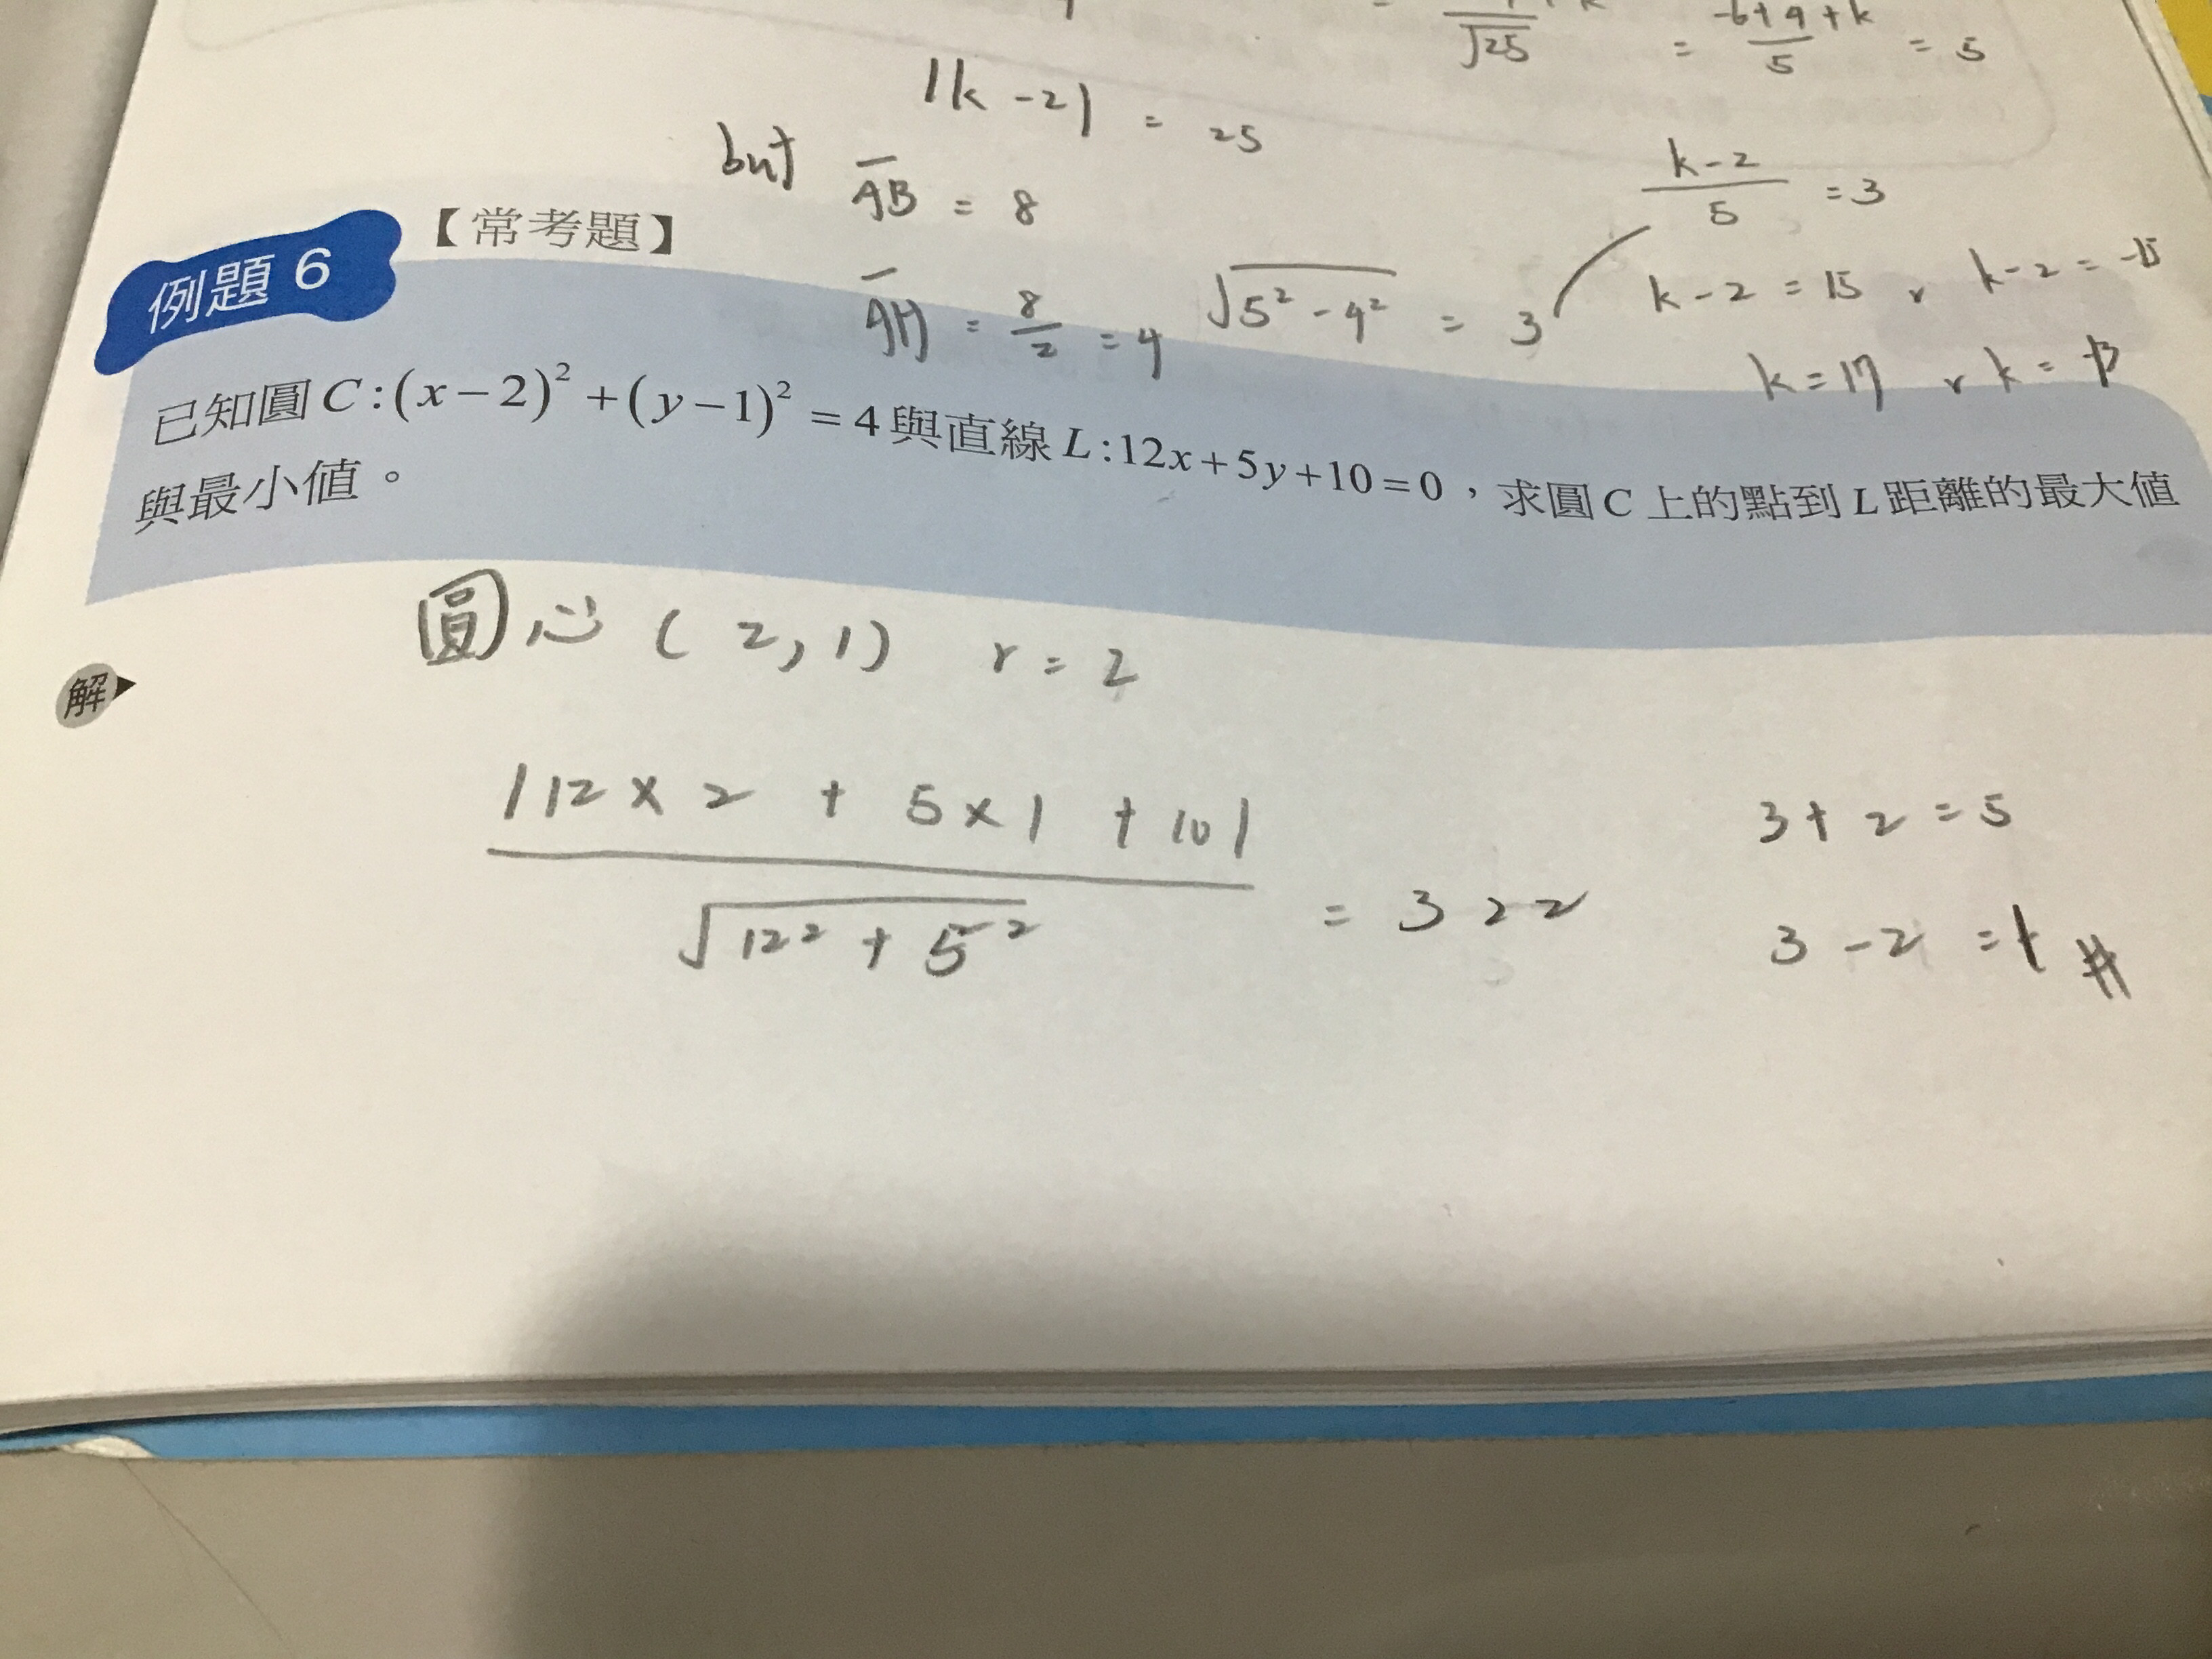 √25 = -6+9+k / 5 = 5
|k-2| = 25
but AB = 8
k-2 / 5 = 3
【常考題】
例題 6
AH = 8/2 = 4 √5²-4² = 3
k-2 = 15 , k-2 = -15
k = 17 , k = -13
已知圓C:(x-2)²+(y-1)²=4與直線L:12x+5y+10=0,求圓C上的點到L距離的最大值
與最小值。
圓心 (2,1) r=2
解
|12×2 + 5×1 + 10| / √12²+5² = 3 > 2
3+2=5
3-2=1 #